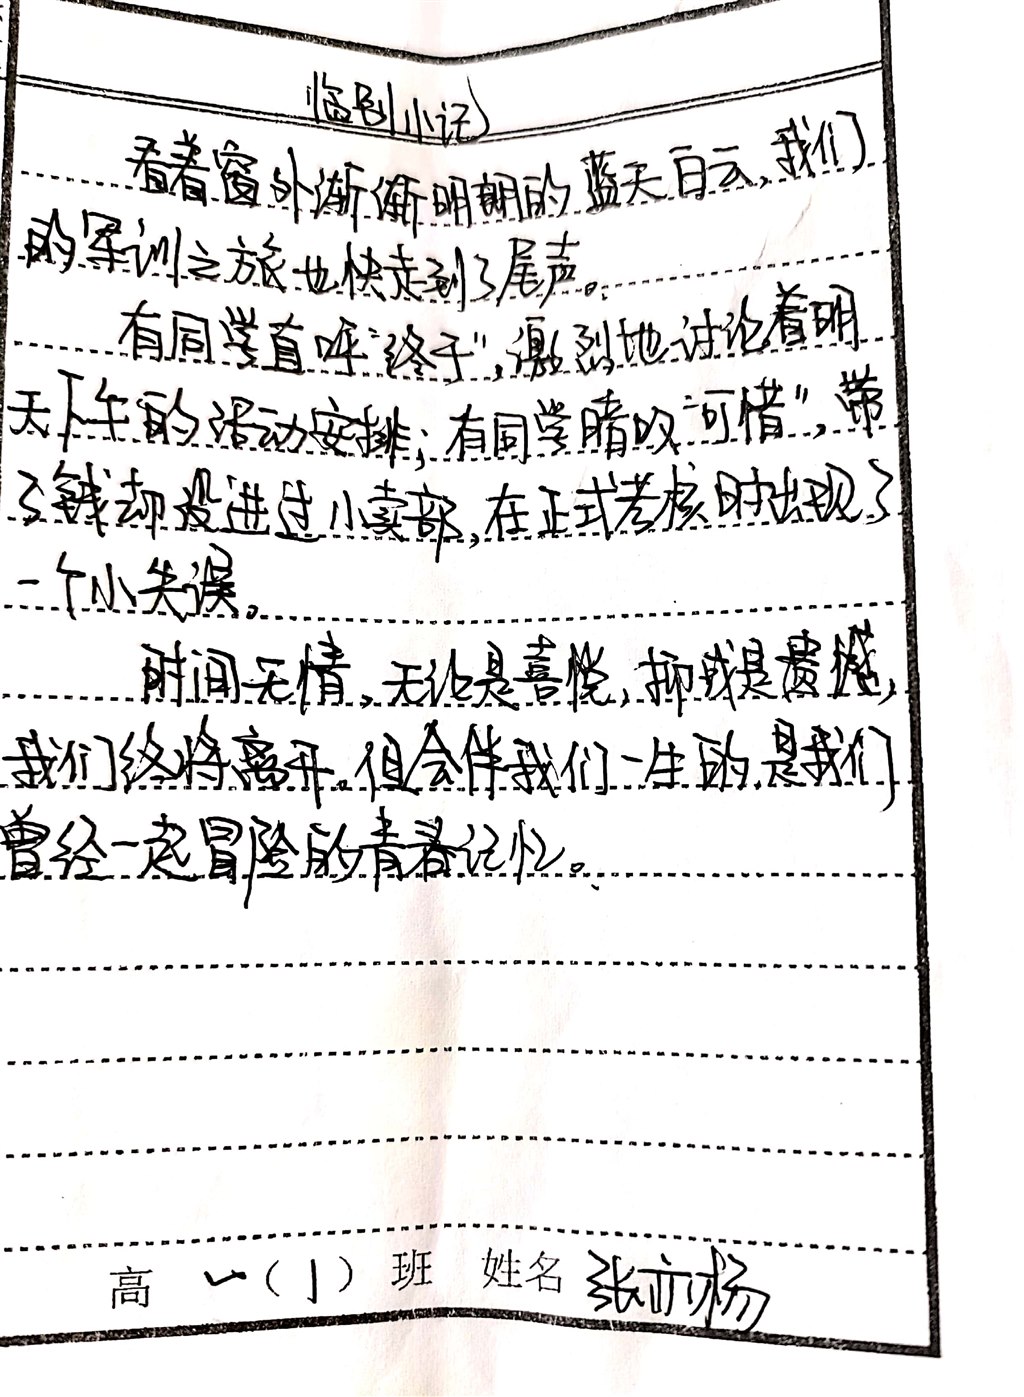 临别小记
看着窗外渐渐明朗的蓝天白云，我们
的军训之旅也快走到了尾声。
有同学直呼“终于”，激烈地讨论着明
天下午的活动安排；有同学暗叹“可惜”，带
了钱却没进过小卖部，在正式考核时出现了
一个小失误。
时间无情，无论是喜悦，抑或是遗憾，
我们终将离开。但会伴我们一生的，是我们
曾经一起冒险的青春记忆。
高一（1）班 姓名 张亦杨